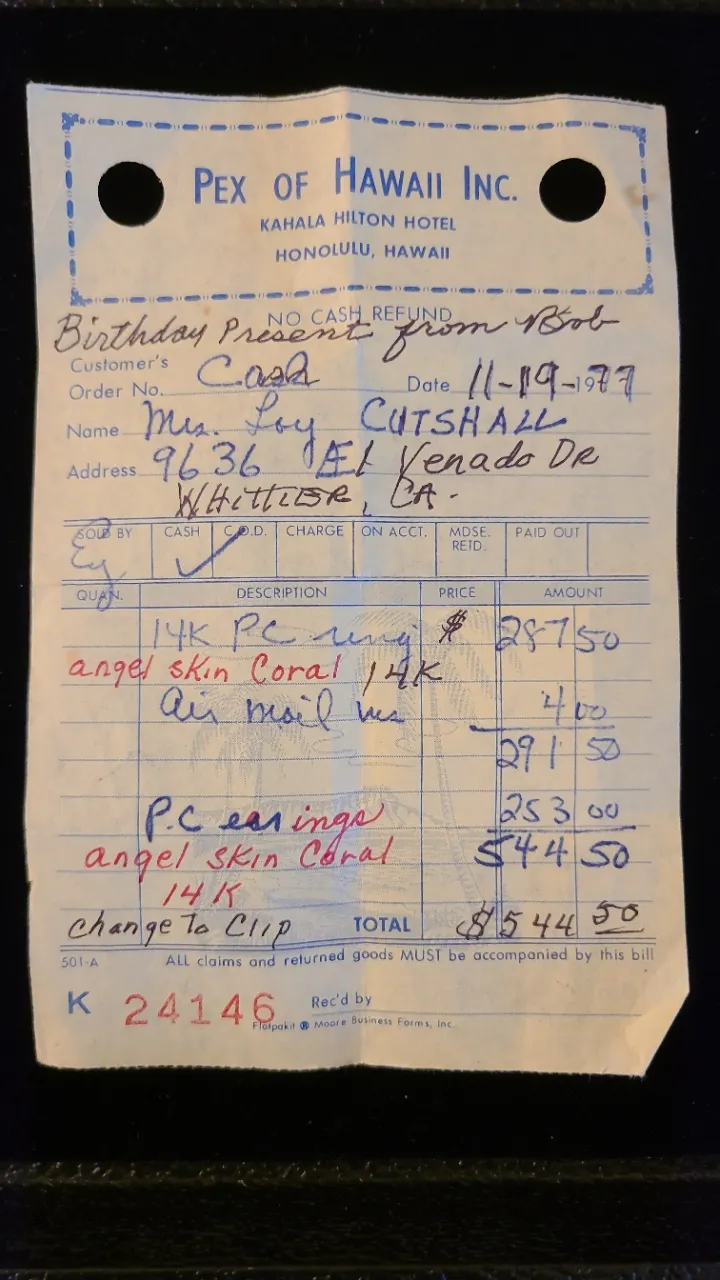 PEX OF HAWAII INC.
KAHALA HILTON HOTEL
HONOLULU, HAWAII
NO CASH REFUND
Birthday Present from Bob
Customer's
Order No. Cash Date 11-19-1977
Name Mrs. Loy CUTSHALL
Address 9636 El Venado DR
WHITTIER, CA.
SOLD BY CASH C.O.D. CHARGE ON ACCT. MDSE. RETD. PAID OUT
✓
QUAN. DESCRIPTION PRICE AMOUNT
14K PC ring $ 287 50
angel skin Coral 14K
Air mail 4 00
291 50
P.C earings 253 00
angel skin Coral 544 50
14 K
change To Clip TOTAL $544 50
501-A ALL claims and returned goods MUST be accompanied by this bill
K 24146 Rec'd by
Flatpakit ® Moore Business Forms, Inc.